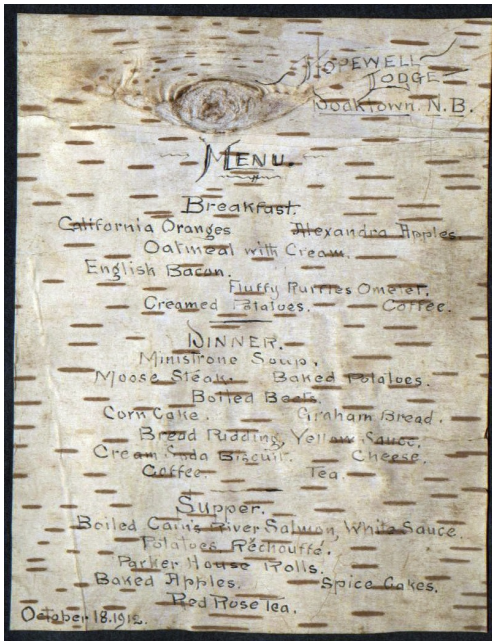 HOPEWELL
LODGE
Doaktown. N.B.
MENU.
Breakfast.
California Oranges Alexandra Apples.
Oatmeal with Cream.
English Bacon.
Fluffy Ruffles Omelet.
Creamed Potatoes. Coffee.
DINNER.
Ministrone Soup.
Moose Steak. Baked Potatoes.
Boiled Beets.
Corn Cake. Graham Bread.
Bread Pudding, Yellow Sauce.
Cream Soda Biscuit. Cheese.
Coffee. Tea.
Supper.
Boiled Cain's River Salmon, White Sauce.
Potatoes Réchouffé.
Parker House Rolls.
Baked Apples. Spice Cakes.
Red Rose Tea.
October 18.1912.